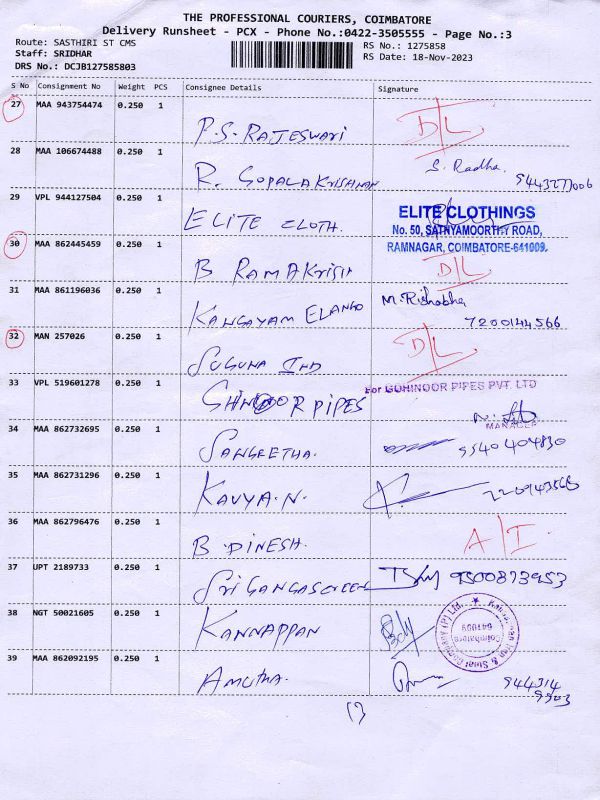 THE PROFESSIONAL COURIERS, COIMBATORE
Delivery Runsheet - PCX - Phone No.:0422-3505555 - Page No.:3
Route: SASTHIRI ST CMS
RS No.: 1275858
Staff: SRIDHAR
RS Date: 18-Nov-2023
DRS No.: DCJB127585803
S No Consignment No Weight PCS Consignee Details Signature
27 MAA 943754474 0.250 1 P.S. RAJESWARI D/L
28 MAA 106674488 0.250 1 R. GOPALAKRISHNAN S. Radha. 9443277006
29 VPL 944127504 0.250 1 ELITE CLOTH.
ELITE CLOTHINGS
No. 50, SATHYAMOORTHY ROAD,
RAMNAGAR, COIMBATORE-641009.
30 MAA 862445459 0.250 1 B RAMAKRISH D/L
31 MAA 861196036 0.250 1 KANGAYAM ELANGO M. Rishabha 7200144566
32 MAN 257026 0.250 1 SUGUNA IND D/L
33 VPL 519601278 0.250 1 PIPES
For GOHINOOR PIPES PVT. LTD
MANAGER
34 MAA 862732695 0.250 1 SANGEETHA. 9540404830
35 MAA 862731296 0.250 1 KAVYA.N.
36 MAA 862796476 0.250 1 B DINESH. A/I.
37 UPT 2189733 0.250 1 SRI GANGA SCREEN 9500873953
38 NGT 50021605 0.250 1 KANNAPPAN
Coimbatore
641009
39 MAA 862092195 0.250 1 AMUTHA. 944314
9903
13